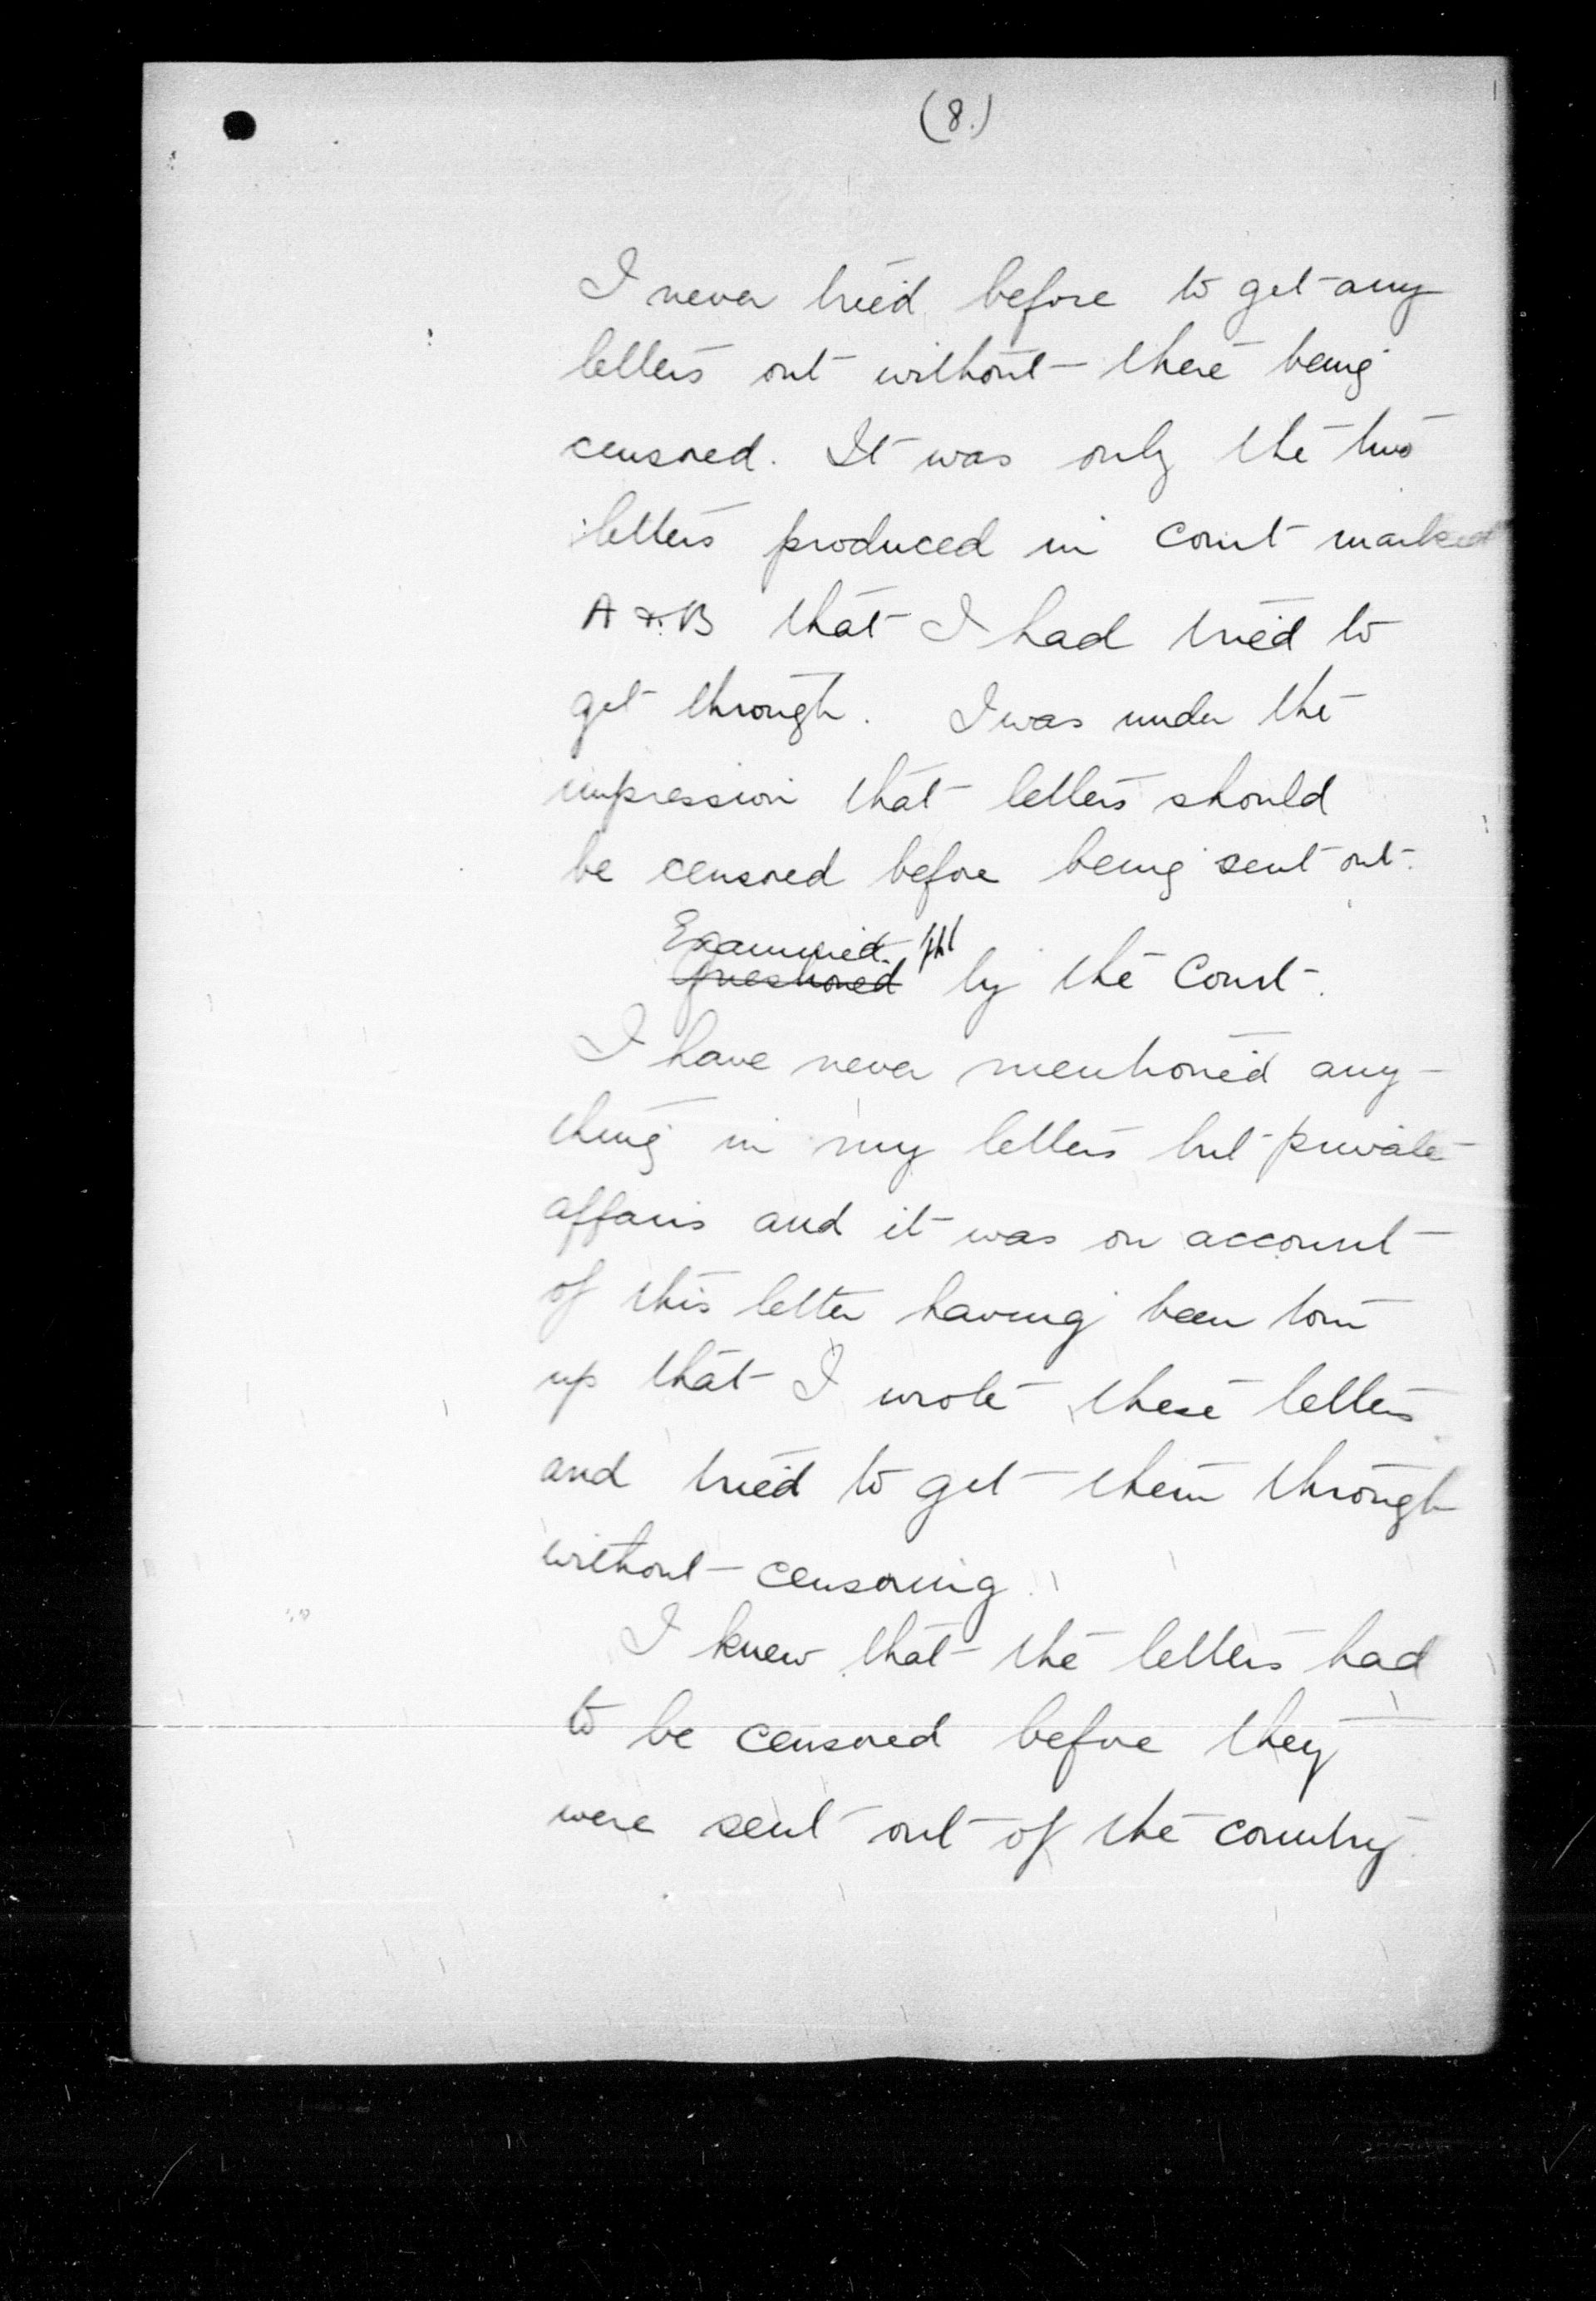 (8.)
I never tried before to get any
letters out without there being
censored. It was only the two
letters produced in court marked
A & B that I had tried to
get through. I was under the
impression that letters should
be censored before being sent out.
Examined
Questioned by the Court.
I have never mentioned any-
thing in my letters but private
affairs and it was on account
of this letter having been torn
up that I wrote these letters
and tried to get them through
without censoring.
I knew that the letters had
to be censored before they
were sent out of the country.